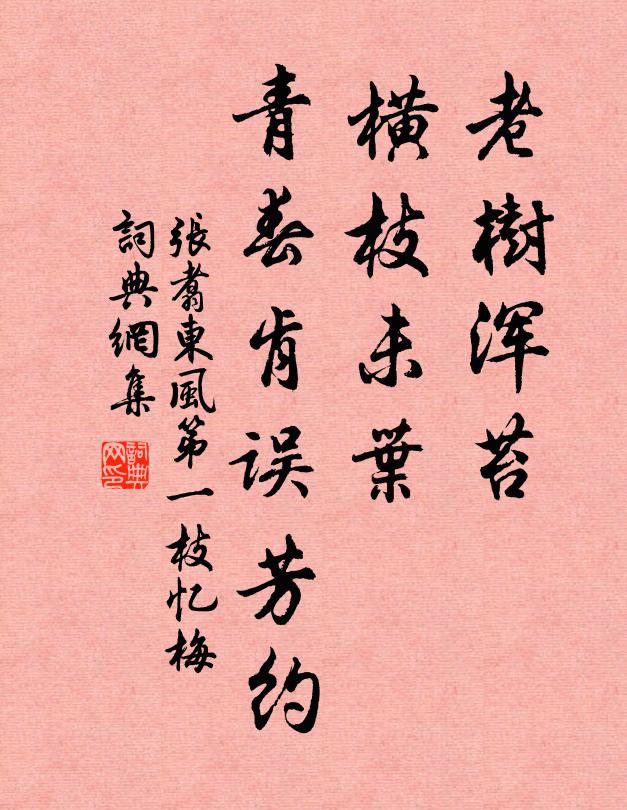 老樹浑苔
橫枝未葉
青春肯误芳约
張翥東風第一枝忆梅
詞典網集
詞典網印